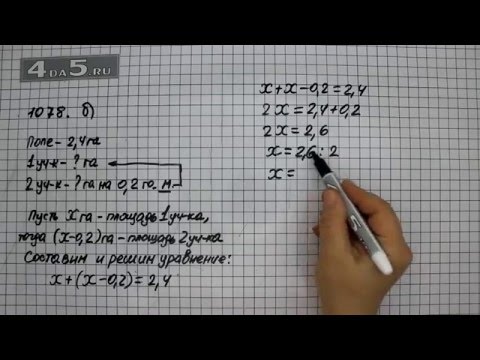 4DA5.RU
1078. б)
Поле - 2,4 га
1 уч-к - ? га
2 уч-к - ? га на 0,2 га. м.
Пусть х га - площадь 1 уч-ка,
тогда (х-0,2) га - площадь 2 уч-ка
Составим и решим уравнение:
х+(х-0,2)=2,4
х+х-0,2=2,4
2х=2,4+0,2
2х=2,6
х=2,6:2
х=